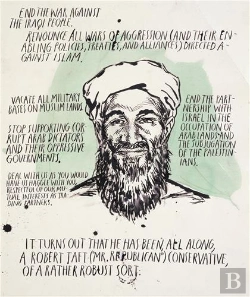 END THE WAR AGAINST
THE IRAQI PEOPLE.
RENOUNCE ALL WARS OF AGGRESSION (AND THEIR EN-
ABLING POLICIES, TREATIES, AND ALLIANCES) DIRECTED A-
GAINST ISLAM.
VACATE ALL MILITARY
BASES ON MUSLIM LANDS.
STOP SUPPORTING COR-
RUPT ARAB DICTATORS
AND THEIR OPPRESSIVE
GOVERNMENTS.
DEAL WITH US AS YOU WOULD
HAVE US
RESPECTFUL OF OUR MU-
TUAL INTERESTS AS TRA-
DING PARTNERS.
END THE PART-
NERSHIP WITH
ISRAEL IN THE
OCCUPATION OF
ARAB LAND AND
THE SUBJUGATION
OF THE PALESTIN-
IANS.
IT TURNS OUT THAT HE HAS BEEN, ALL ALONG,
A ROBERT TAFT ("MR. REPUBLICAN") CONSERVATIVE,
OF A RATHER ROBUST SORT.
B